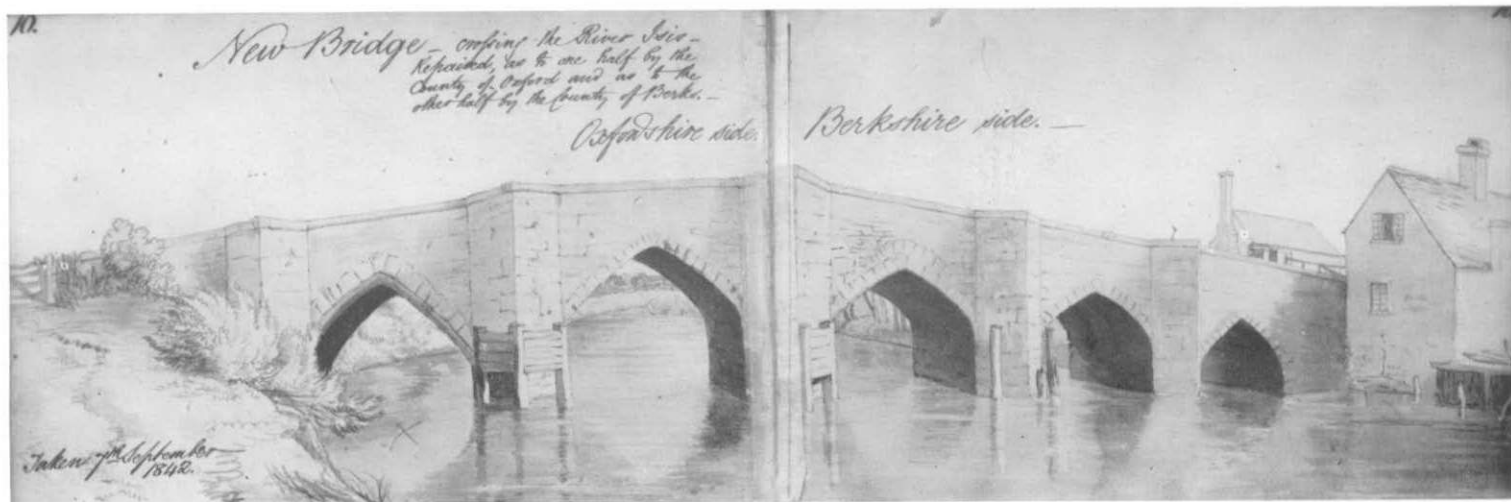 10.
New Bridge – crossing the River Isis –
Repaired, as to one half by the
County of Oxford and as to the
other half by the County of Berks. –
Oxfordshire side.
Berkshire side. –
Taken 7th September
1842.